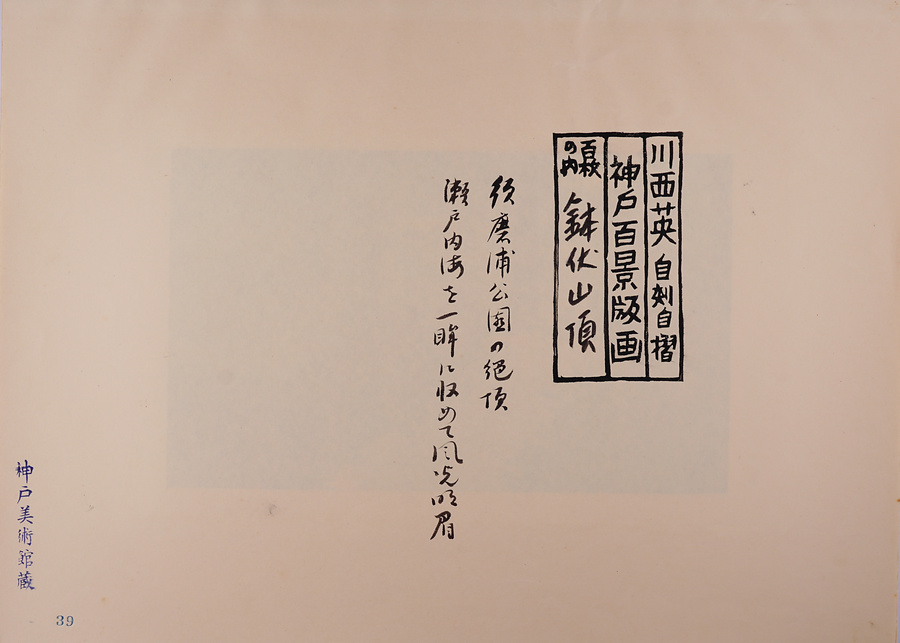 川西英 自刻自摺
神戸百景版画
百枚の内 鉢伏山頂
須磨浦公園の絶頂
瀬戸内海を一眸に収めて風光明眉
神戸美術館蔵
39